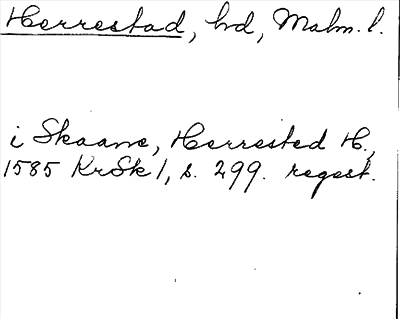 Herrestad, hd, Malm. l.
i Skaane, Herrested H.,
1585 KrSk 1, s. 299. regest.